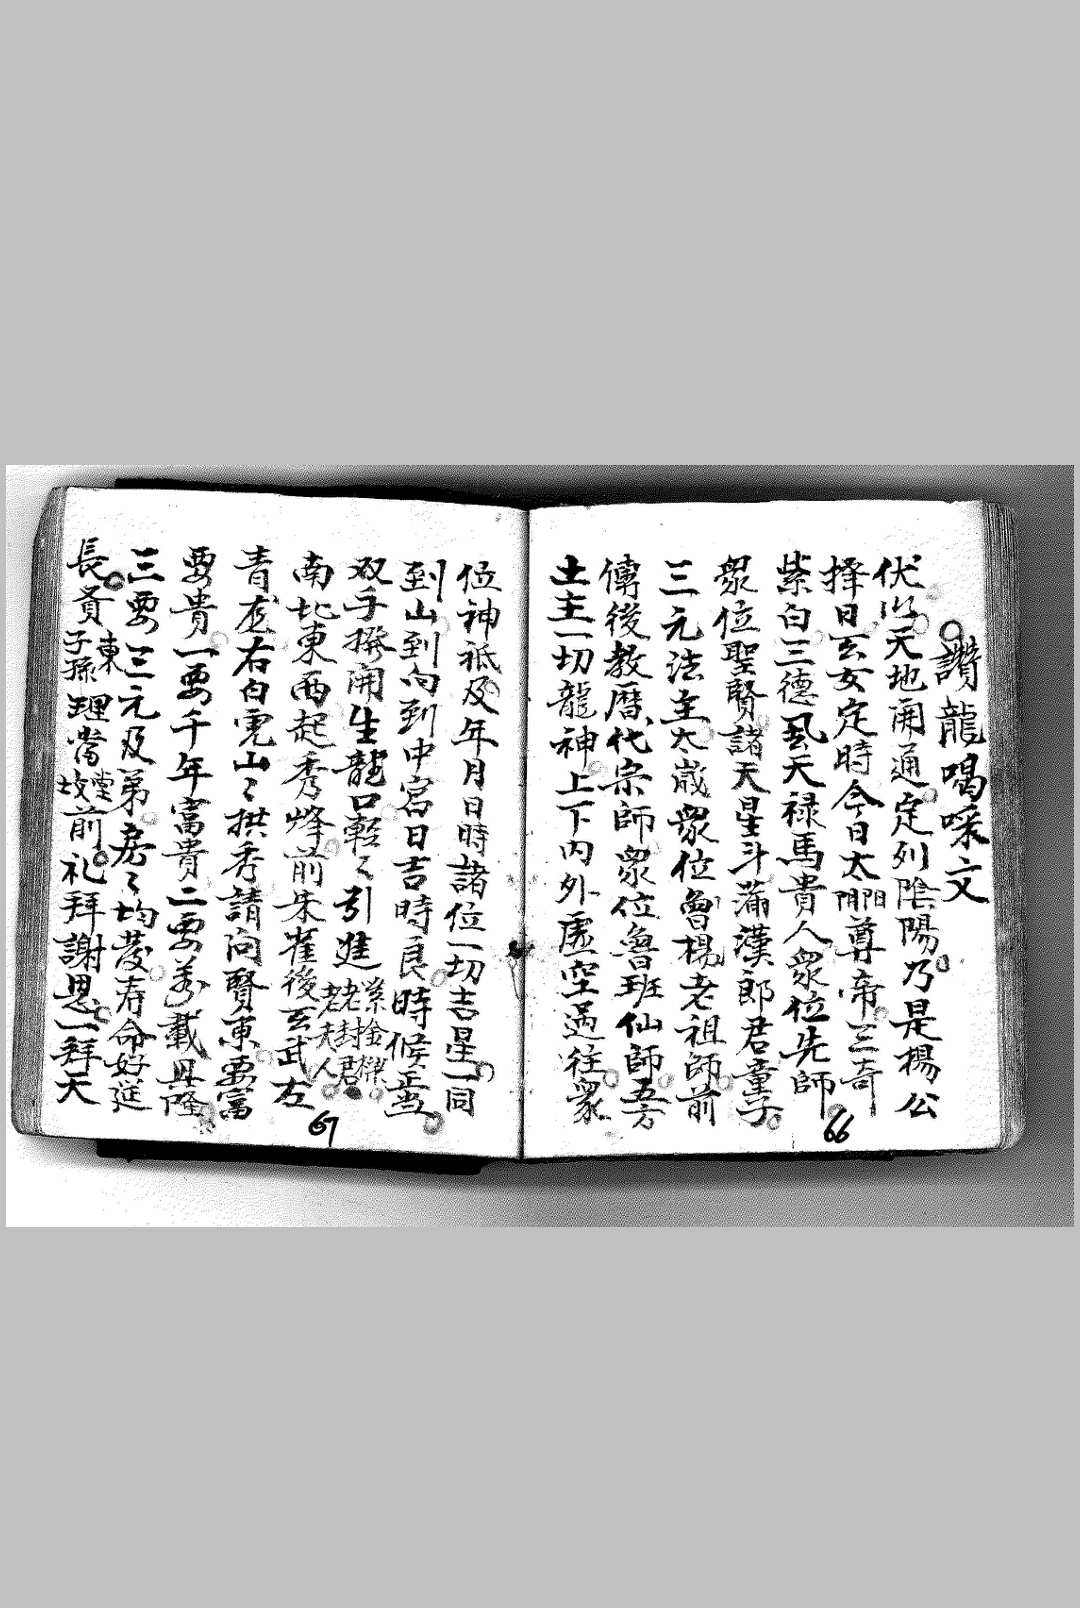 讚龍喝采文
伏以天地開通定列陰陽乃是楊公
擇日玄女定時今日太陽尊帝三奇
紫白三德風天禄馬貴人衆位先師
衆位聖賢諸天星斗滿漢郎君童子
三元法主太歲衆位魯楊老祖師前
傳後教曆代宗師衆位魯班仙師五方
土主一切龍神上下內外虛空過往衆
66
位神祇及年月日時諸位一切吉星一同
到山到向到中宮日吉時良時候正当
双手撥開生龍口輕〻引進 老封君 老夫人
南北東西起秀峰前朱雀後玄武左
青龙右白虎山〻拱秀請问賢東要富
要貴一要千年富貴二要萬載興隆
三要三元及弟房〻均發寿命好延
長賚東子孫理当堂坟前礼拜謝恩一拜天
67